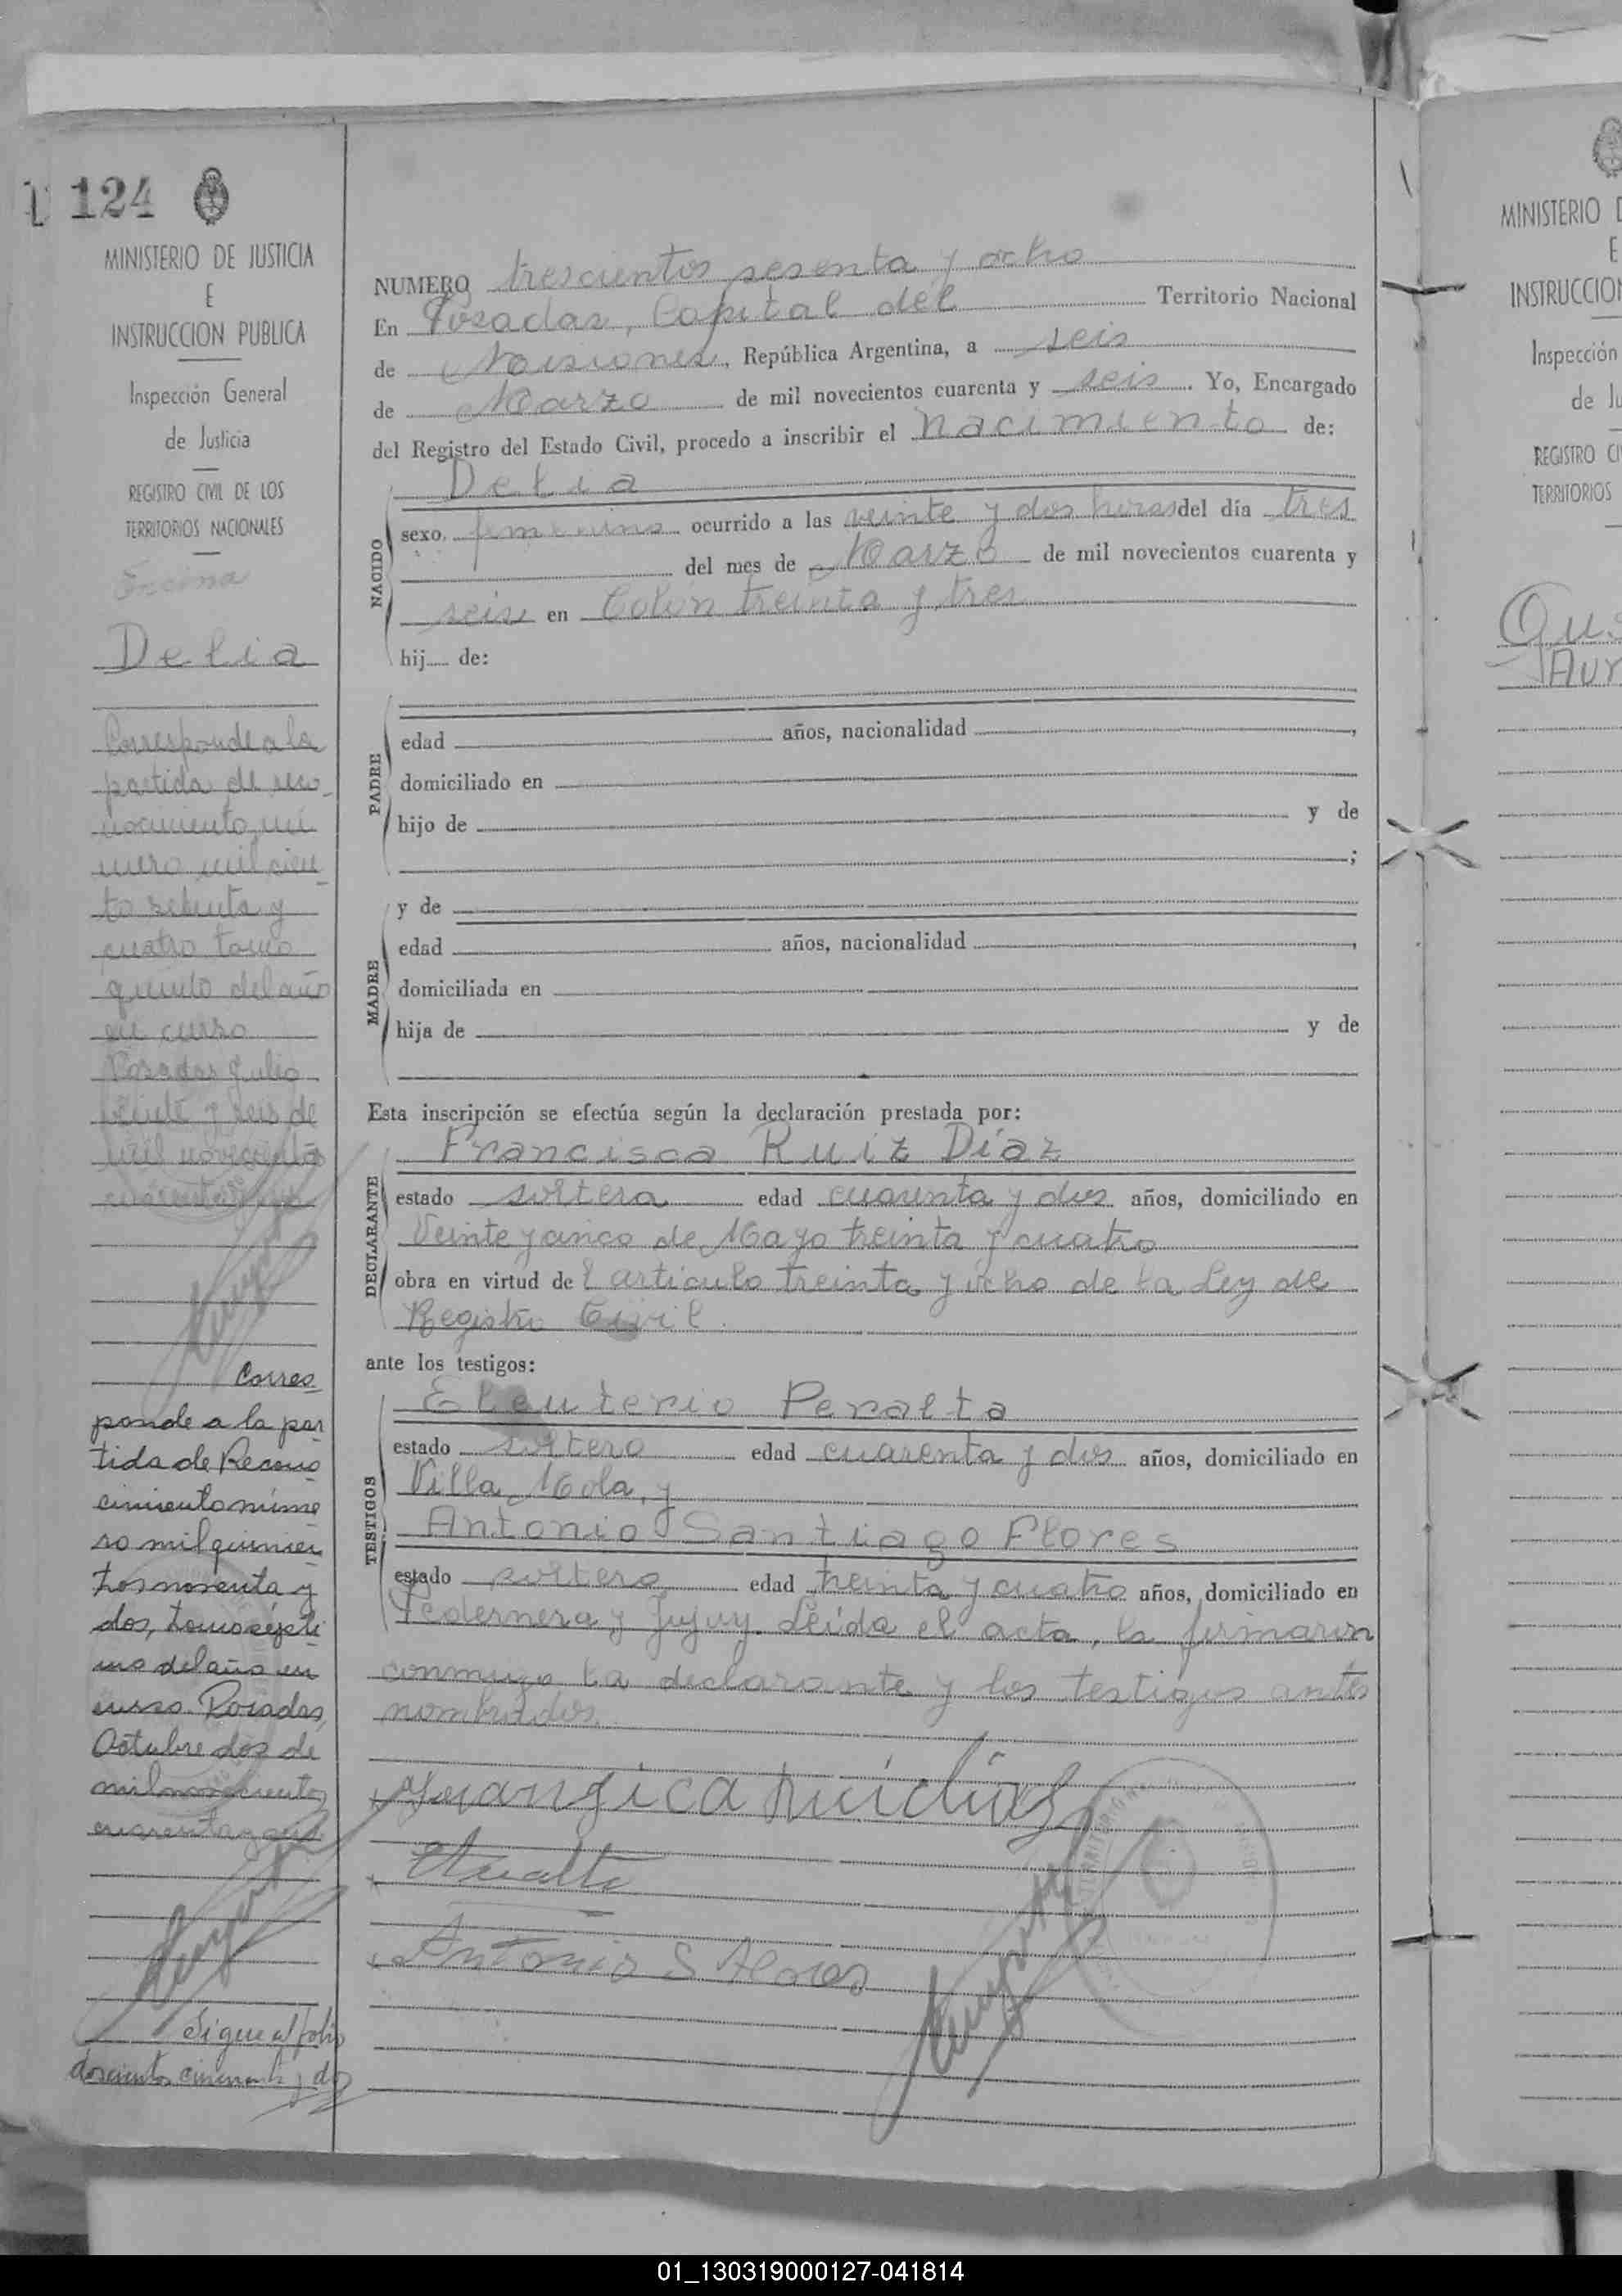 124
MINISTERIO DE JUSTICIA
E
INSTRUCCION PUBLICA
Inspección General
de Justicia
REGISTRO CIVIL DE LOS
TERRITORIOS NACIONALES
Delia
Corresponde a la
partida de reco-
nocimiento nú
mero mil cien-
to setenta y
cuatro tomo
quinto del año
en curso
Posadas Julio
veinte y seis de
mil novecientos
cuarenta y seis
Corres
ponde a la par
tida de Recono
cimiento núme
ro mil quinien
tos noventa y
dos, tomo sépti
mo del año en
curso. Posadas,
Octubre dos de
mil novecientos
cuarenta y seis
Sigue al folio
doscientos cincuenta y dos
NUMERO trescientos sesenta y ocho
En Posadas, Capital del Territorio Nacional
de Misiones, República Argentina, a seis
de Marzo de mil novecientos cuarenta y seis. Yo, Encargado
del Registro del Estado Civil, procedo a inscribir el nacimiento de:
NACIDO
Delia
sexo femenino ocurrido a las veinte y dos horas del día tres
del mes de Marzo de mil novecientos cuarenta y
seis en Colón treinta y tres
hij de:
PADRE
edad años, nacionalidad ,
domiciliado en
hijo de y de
;
MADRE
y de
edad años, nacionalidad ,
domiciliada en
hija de y de
Esta inscripción se efectúa según la declaración prestada por:
DECLARANTE
Francisca Ruiz Díaz
estado soltera edad cuarenta y dos años, domiciliado en
Veinte y cinco de Mayo treinta y cuatro
obra en virtud del artículo treinta y ocho de la Ley de
Registro Civil.
ante los testigos:
TESTIGOS
Eleuterio Peralta
estado soltero edad cuarenta y dos años, domiciliado en
Villa Mola, y
Antonio Santiago Flores
estado soltero edad treinta y cuatro años, domiciliado en
Pedernera y Jujuy. Leída el acta, la firmaron
conmigo la declarante y los testigos antes
nombrados.
Antonio S Flores
MINISTERIO D
E
INSTRUCCION
Inspección
de Ju
REGISTRO CI
TERRITORIOS
01_130319000127-041814